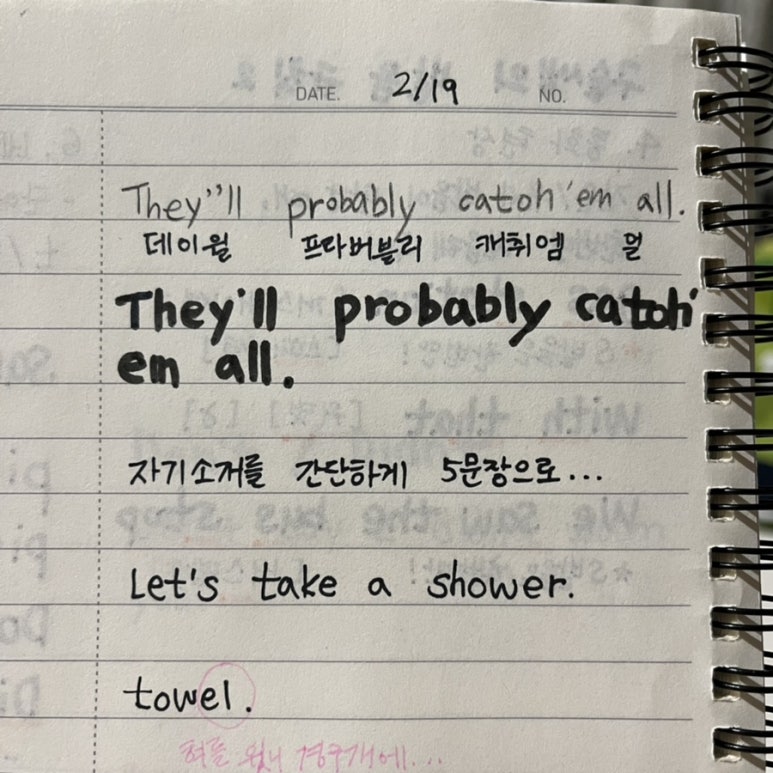 DATE. 2/19 NO.
They''ll probably catch 'em all.
데이윌 프라버블리 캐취엠 얼
They'll probably catch'
em all.
자기소개를 간단하게 5문장으로...
Let's take a shower.
towel.
혀를 윗니 경구개에...